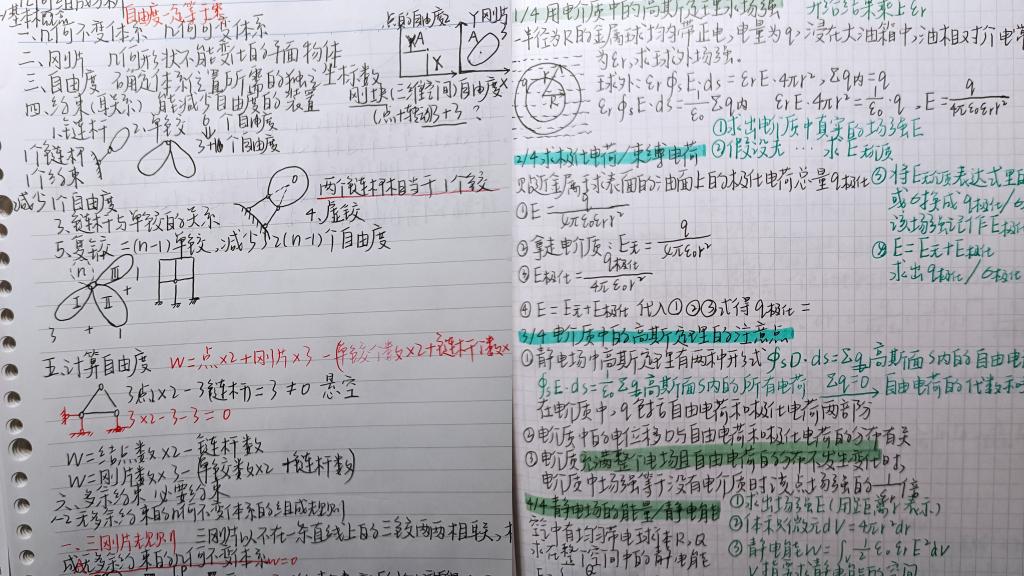 自由度
一、几何不变体系 几何可变体系
点的自由度 y 刚片
二、刚片 几何形状不能变化的平面物体
A
x
三、自由度 确定体系位置所需的独立坐标数
四、约束(联系) 能减少自由度的装置
刚块(三维空间)自由度
(点+转动)3+3?
1.链杆 2.单铰 6个自由度
1个链杆
1个约束
减少1个自由度
两个链杆相当于1个铰
3.链杆与单铰的关系 4.虚铰
5.复铰=(n-1)单铰,减少2(n-1)个自由度
(n)
III
I II
五、计算自由度 W=点×2+刚片×3-(单铰个数×2+链杆个数×
3点×2-3链杆=3≠0 悬空
3×2-3-3=0
W=结点数×2-链杆数
W=刚片数×3-(单铰数×2+链杆数)
六、多余约束 必要约束
无多余约束的几何不变体系的组成规则
三刚片规则 三刚片以不在一条直线上的三铰两两相联,
成无多余约束的几何不变体系 W=0
1/4 用电介质中的高斯定理求场强
半径为R的金属球均匀带正电,电量为q,浸在大油箱中,油相对介电常
为εr,求球外场强.
球外:εr∮E·ds=εrE·4πr²,Σq内=q
εr∮E·ds=1/ε0 Σq内 εrE·4πr²=1/ε0·q,E=q/4πε0εrr²
①求出电介质中真实的场强E
②假设无…求E无质
2/4 求极化电荷/束缚电荷
贴近金属球表面的油面上的极化电荷总量q极化
①E=q/4πε0εrr²
②拿走电介质:E无=q/4πε0r²
③E极化=q极化/4πε0r²
④E=E无+E极化 代入①②③式得q极化=
③将E无质表达式里的
或σ换成q极化/σ
该场强记作E极化
④E=E无+E极化
求出q极化/σ极化
3/4 电介质中的高斯定理的注意点
①静电场中高斯定理有两种形式∮sD·ds=Σq高斯面S内的自由电
∮sE·ds=1/ε0 Σq高斯面S内的所有电荷 Σq=0 自由电荷的代数和
在电介质中,q包括自由电荷和极化电荷两部分
②电介质中的电位移D与自由电荷和极化电荷的分布有关
③电介质充满整个电场且自由电荷的分布不发生变化时,
电介质中场强等于没有电介质时该点场强的1/εr倍
4/4 静电场的能量/静电能
空气中有均匀带电球体R,Q
求在整个空间中的静电能
①求出场强E(用距离r表示)
②体积微元dV=4πr²dr
③静电能W=∫v 1/2 ε0εrE²dV
V指需求静电能的空间